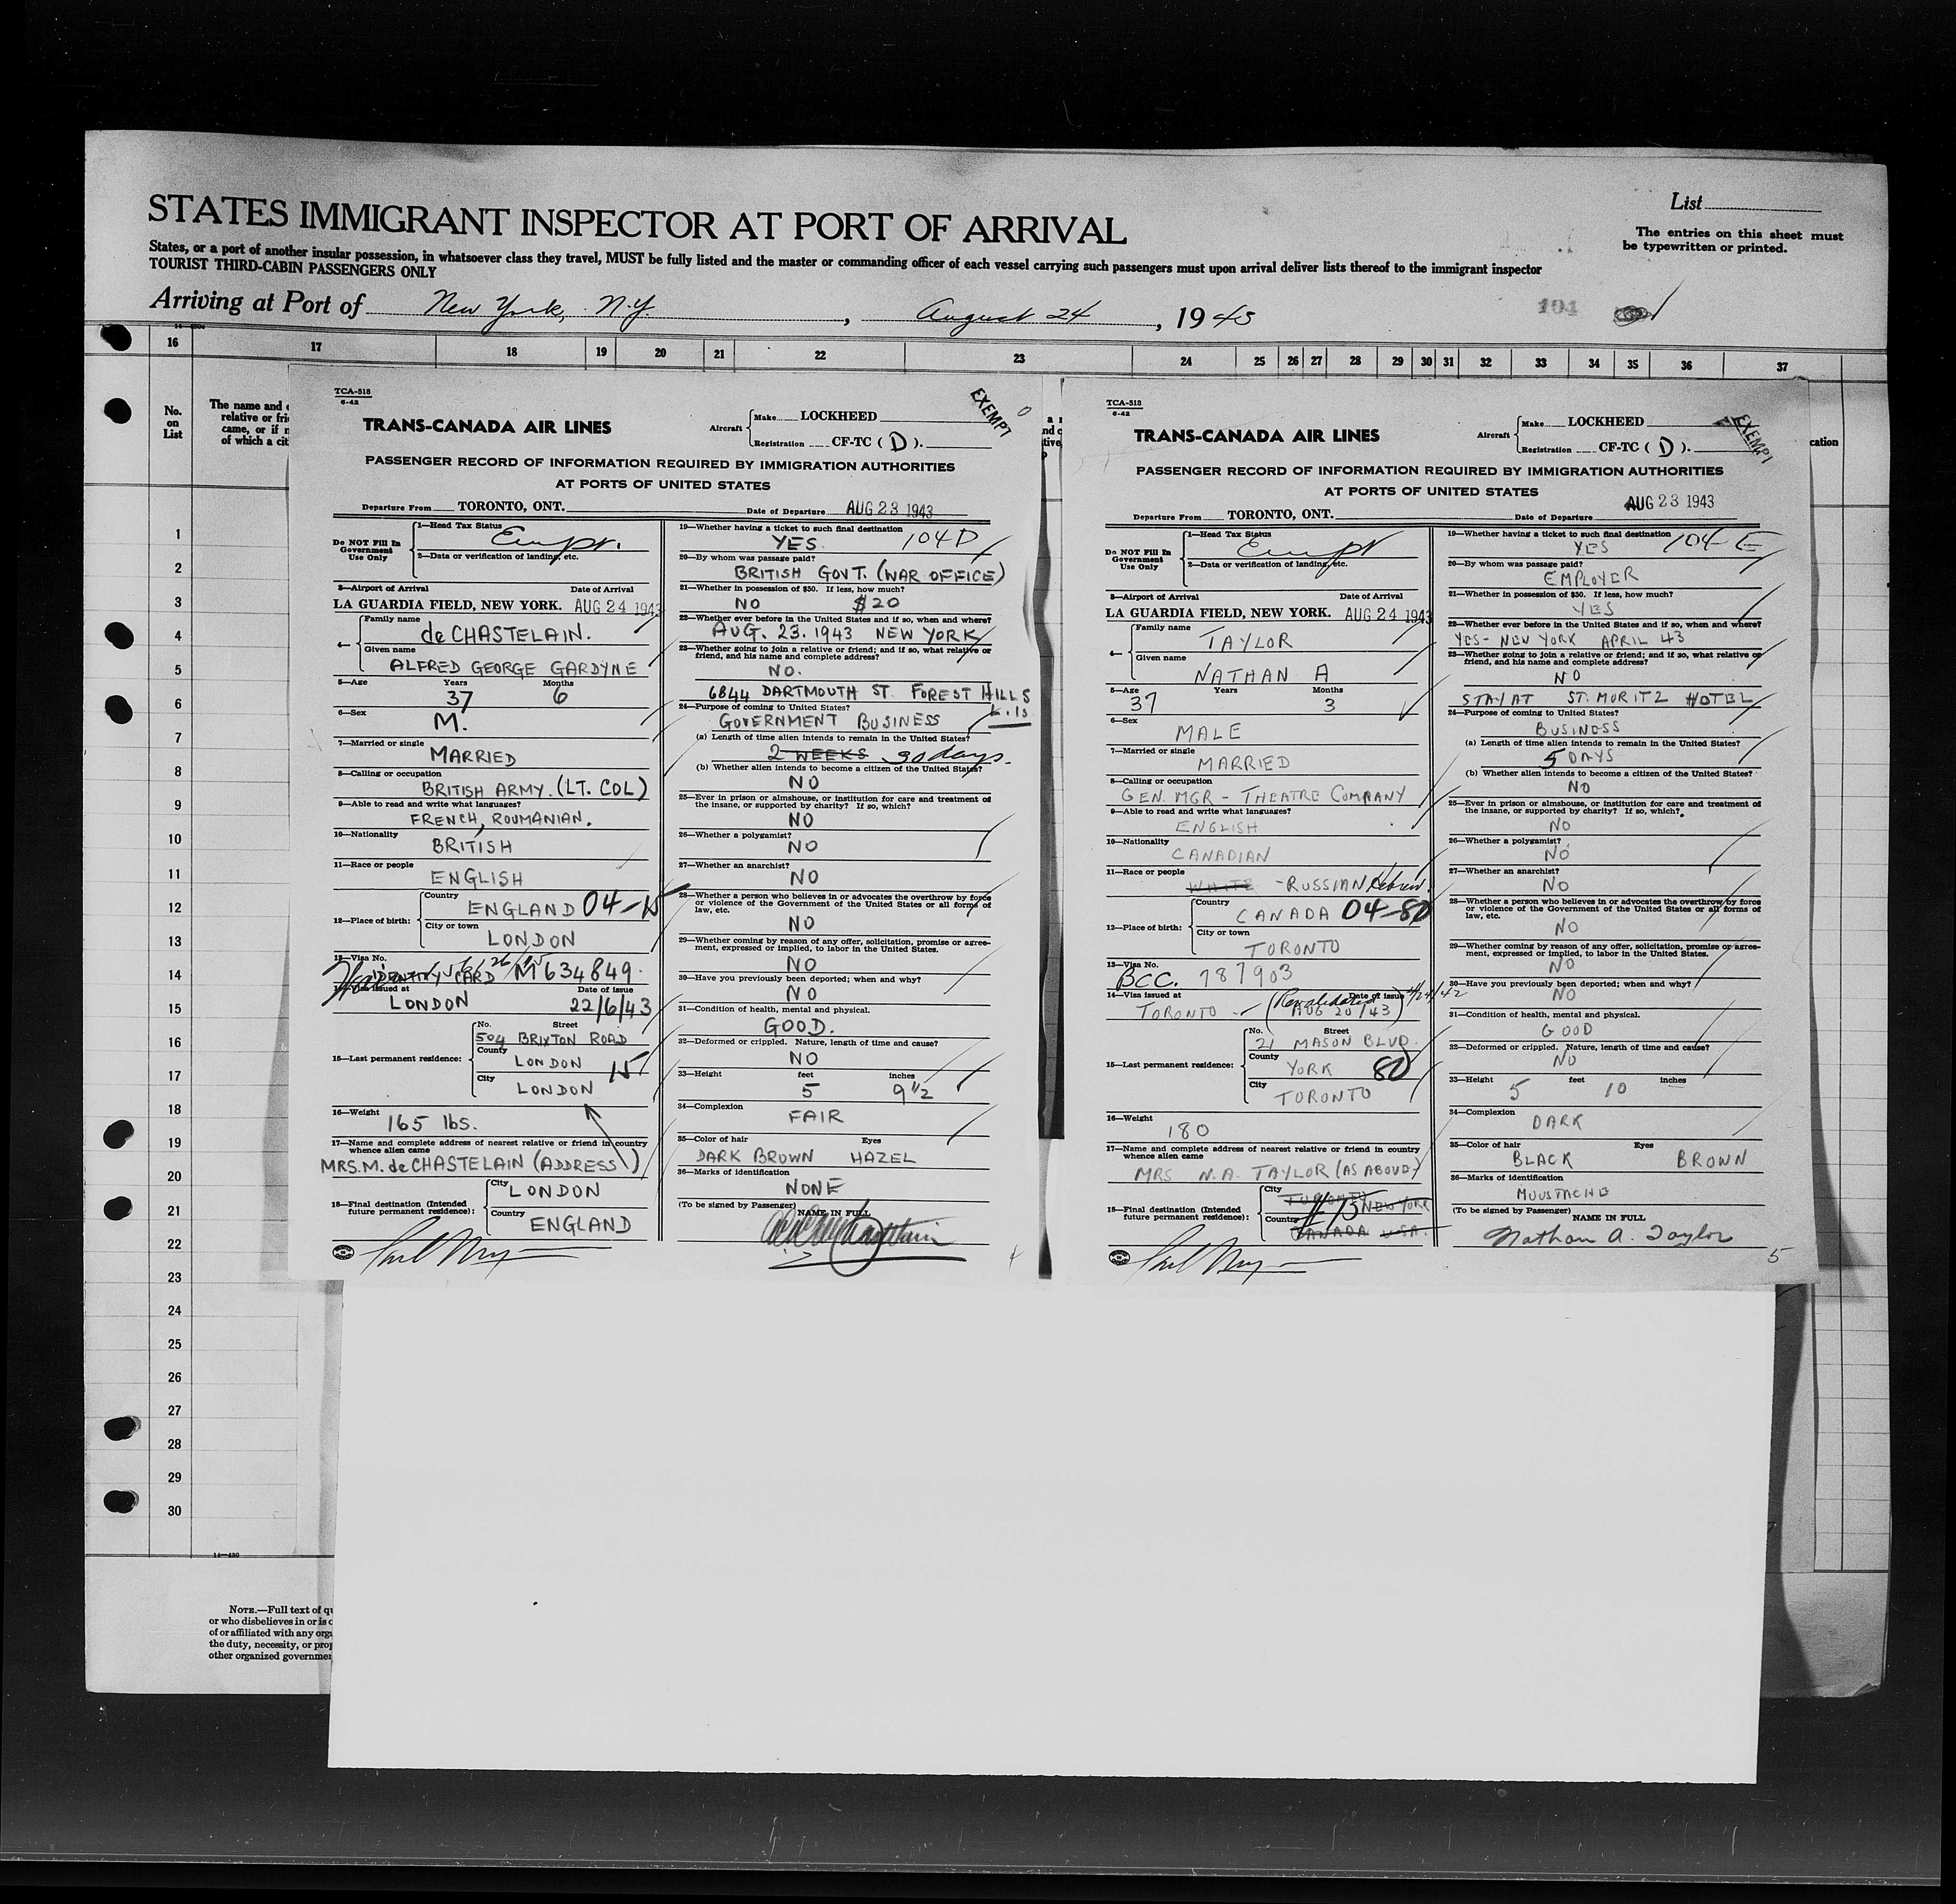 STATES IMMIGRANT INSPECTOR AT PORT OF ARRIVAL
List
The entries on this sheet must
be typewritten or printed.
States, or a port of another insular possession, in whatsoever class they travel, MUST be fully listed and the master or commanding officer of each vessel carrying such passengers must upon arrival deliver lists thereof to the immigrant inspector
TOURIST THIRD-CABIN PASSENGERS ONLY
Arriving at Port of New York, N.Y. , August 24 , 1943
104
16 17 18 19 20 21 22 23 24 25 26 27 28 29 30 31 32 33 34 35 36 37
No.
on
List
The name and
relative or fri
came, or if n
of which a cit
cation
1
2
3
4
5
6
7
8
9
10
11
12
13
14
15
16
17
18
19
20
21
22
23
24
25
26
27
28
29
30
TCA-518
6-42
EXEMPT
TRANS-CANADA AIR LINES
Aircraft
Make LOCKHEED
Registration CF-TC ( D ).
PASSENGER RECORD OF INFORMATION REQUIRED BY IMMIGRATION AUTHORITIES
AT PORTS OF UNITED STATES
Departure From TORONTO, ONT. Date of Departure AUG 23 1943
Do NOT Fill In
Government
Use Only
1—Head Tax Status
Exempt.
2—Data or verification of landing, etc.
3—Airport of Arrival Date of Arrival
LA GUARDIA FIELD, NEW YORK. AUG 24 1943
4—
Family name
de CHASTELAIN.
Given name
ALFRED GEORGE GARDYNE
5—Age Years Months
37 6
6—Sex
M.
7—Married or single
MARRIED
8—Calling or occupation
BRITISH ARMY. (LT. COL)
9—Able to read and write what languages?
FRENCH, ROUMANIAN.
10—Nationality
BRITISH
11—Race or people
ENGLISH
12—Place of birth:
Country
ENGLAND 04-15
City or town
LONDON
13—Visa No.
IDENTITY CARD M634849.
14—Visa issued at Date of issue
LONDON 22/6/43
15—Last permanent residence:
No. Street
504 BRIXTON ROAD
County
LONDON 15
City
LONDON
16—Weight
165 lbs.
17—Name and complete address of nearest relative or friend in country
whence alien came
MRS. M. de CHASTELAIN (ADDRESS )
18—Final destination (Intended
future permanent residence):
City
LONDON
Country
ENGLAND
19—Whether having a ticket to such final destination
YES. 104D
20—By whom was passage paid?
BRITISH GOVT. (WAR OFFICE)
21—Whether in possession of $50. If less, how much?
NO $20
22—Whether ever before in the United States and if so, when and where?
AUG. 23. 1943 NEW YORK
23—Whether going to join a relative or friend; and if so, what relative or
friend, and his name and complete address?
NO.
6844 DARTMOUTH ST. FOREST HILLS
L.I.
24—Purpose of coming to United States?
GOVERNMENT BUSINESS
(a) Length of time alien intends to remain in the United States?
2 WEEKS 30 days.
(b) Whether alien intends to become a citizen of the United States?
NO
25—Ever in prison or almshouse, or institution for care and treatment of
the insane, or supported by charity? If so, which?
NO
26—Whether a polygamist?
NO
27—Whether an anarchist?
NO
28—Whether a person who believes in or advocates the overthrow by force
or violence of the Government of the United States or all forms of
law, etc.
NO
29—Whether coming by reason of any offer, solicitation, promise or agree-
ment, expressed or implied, to labor in the United States.
NO
30—Have you previously been deported; when and why?
NO
31—Condition of health, mental and physical.
GOOD.
32—Deformed or crippled. Nature, length of time and cause?
NO
33—Height feet inches
5 9½
34—Complexion
FAIR
35—Color of hair Eyes
DARK BROWN HAZEL
36—Marks of identification
NONE
(To be signed by Passenger)
NAME IN FULL
TCA-518
6-42
EXEMPT
TRANS-CANADA AIR LINES
Aircraft
Make LOCKHEED
Registration CF-TC ( D ).
PASSENGER RECORD OF INFORMATION REQUIRED BY IMMIGRATION AUTHORITIES
AT PORTS OF UNITED STATES
Departure From TORONTO, ONT. Date of Departure AUG 23 1943
Do NOT Fill In
Government
Use Only
1—Head Tax Status
Exempt
2—Data or verification of landing, etc.
3—Airport of Arrival Date of Arrival
LA GUARDIA FIELD, NEW YORK. AUG 24 1943
4—
Family name
TAYLOR
Given name
NATHAN A
5—Age Years Months
37 3
6—Sex
MALE
7—Married or single
MARRIED
8—Calling or occupation
GEN. MGR - THEATRE COMPANY
9—Able to read and write what languages?
ENGLISH
10—Nationality
CANADIAN
11—Race or people
WHITE - RUSSIAN Hebrew.
12—Place of birth:
Country
CANADA 04-80
City or town
TORONTO
13—Visa No.
BCC. 787903
14—Visa issued at Date of issue
TORONTO - (Revalidated AUG 20/43)
15—Last permanent residence:
No. Street
21 MASON BLVD.
County
YORK 80
City
TORONTO
16—Weight
180
17—Name and complete address of nearest relative or friend in country
whence alien came
MRS N.A. TAYLOR (AS ABOVE)
18—Final destination (Intended
future permanent residence):
City
TORONTO NEW YORK
Country
CANADA U.S.A.
19—Whether having a ticket to such final destination
YES 104-E
20—By whom was passage paid?
EMPLOYER
21—Whether in possession of $50. If less, how much?
YES
22—Whether ever before in the United States and if so, when and where?
YES - NEW YORK APRIL 43
23—Whether going to join a relative or friend; and if so, what relative or
friend, and his name and complete address?
NO
STAY AT ST. MORITZ HOTEL
24—Purpose of coming to United States?
BUSINESS
(a) Length of time alien intends to remain in the United States?
5 DAYS
(b) Whether alien intends to become a citizen of the United States?
NO
25—Ever in prison or almshouse, or institution for care and treatment of
the insane, or supported by charity? If so, which?
NO
26—Whether a polygamist?
NO
27—Whether an anarchist?
NO
28—Whether a person who believes in or advocates the overthrow by force
or violence of the Government of the United States or all forms of
law, etc.
NO
29—Whether coming by reason of any offer, solicitation, promise or agree-
ment, expressed or implied, to labor in the United States.
NO
30—Have you previously been deported; when and why?
NO
31—Condition of health, mental and physical.
GOOD
32—Deformed or crippled. Nature, length of time and cause?
NO
33—Height feet inches
5 10
34—Complexion
DARK
35—Color of hair Eyes
BLACK BROWN
36—Marks of identification
MOUSTACHE
(To be signed by Passenger)
NAME IN FULL
Nathan A. Taylor
5
14—430
NOTE.—Full text of qu
or who disbelieves in or is c
of or affiliated with any orga
the duty, necessity, or prop
other organized governmen